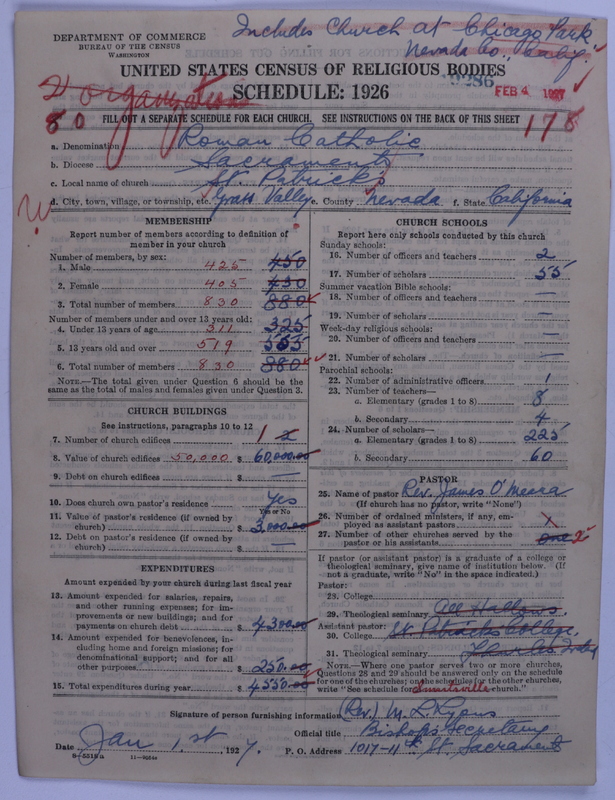 Includes Church at Chicago Park
Nevada Co., Calif.
DEPARTMENT OF COMMERCE
BUREAU OF THE CENSUS
WASHINGTON
UNITED STATES CENSUS OF RELIGIOUS BODIES
SCHEDULE: 1926
FEB 4 1927
2 organizations
80 FILL OUT A SEPARATE SCHEDULE FOR EACH CHURCH. SEE INSTRUCTIONS ON THE BACK OF THIS SHEET 178
a. Denomination Roman Catholic
b. Diocese Sacramento
c. Local name of church St. Patrick's
d. City, town, village, or township, etc. Grass Valley e. County Nevada f. State California
MEMBERSHIP
Report number of members according to definition of
member in your church
Number of members, by sex:
1. Male 425 450
2. Female 405 430
3. Total number of members 830 880
Number of members under and over 13 years old:
4. Under 13 years of age 311 325
5. 13 years old and over 519 555
6. Total number of members 830 880
NOTE.—The total given under Question 6 should be
same as the total of males and females given under Question 3.
CHURCH BUILDINGS
See instructions, paragraphs 10 to 12
7. Number of church edifices 1 2
8. Value of church edifices 50,000 $ 60,000.00
9. Debt on church edifices $ —
10. Does church own pastor's residence Yes
Yes or No
11. Value of pastor's residence (if owned by
church) $ 3,000.00
12. Debt on pastor's residence (if owned by
church) $ —
EXPENDITURES
Amount expended by your church during last fiscal year
13. Amount expended for salaries, repairs,
and other running expenses; for im-
provements or new buildings; and for
payments on church debt $ 4300.00
14. Amount expended for benevolences, in-
cluding home and foreign missions; for
denominational support; and for all
other purposes $ 250.00
15. Total expenditures during year $ 4550.00
CHURCH SCHOOLS
Report here only schools conducted by this church
Sunday schools:
16. Number of officers and teachers 2
17. Number of scholars 55
Summer vacation Bible schools:
18. Number of officers and teachers —
19. Number of scholars —
Week-day religious schools:
20. Number of officers and teachers —
21. Number of scholars —
Parochial schools:
22. Number of administrative officers 1
23. Number of teachers—
a. Elementary (grades 1 to 8) 8
b. Secondary 4
24. Number of scholars—
a. Elementary (grades 1 to 8) 225
b. Secondary 60
PASTOR
25. Name of pastor Rev. James O'Meara
(If church has no pastor, write "None")
26. Number of ordained ministers, if any, em-
ployed as assistant pastors
27. Number of other churches served by the
pastor or his assistants one 2
If pastor (or assistant pastor) is a graduate of a college or
theological seminary, give name of institution below. (If
not a graduate, write "No" in the space indicated.)
Pastor:
28. College
29. Theological seminary All Hallows
Assistant pastor:
30. College St. Patricks College,
31. Theological seminary
NOTE.—Where one pastor serves two or more churches,
Questions 28 and 29 should be answered only on the schedule
for one of the churches; on the schedules for the other churches,
write "See schedule for Smartsville church."
Signature of person furnishing information (Rev.) M. L. Lyons
Official title Bishop's Secretary
Date Jan 1st, 1927. P. O. Address 1017-11th St. Sacramento
8—5518a 11—9564a